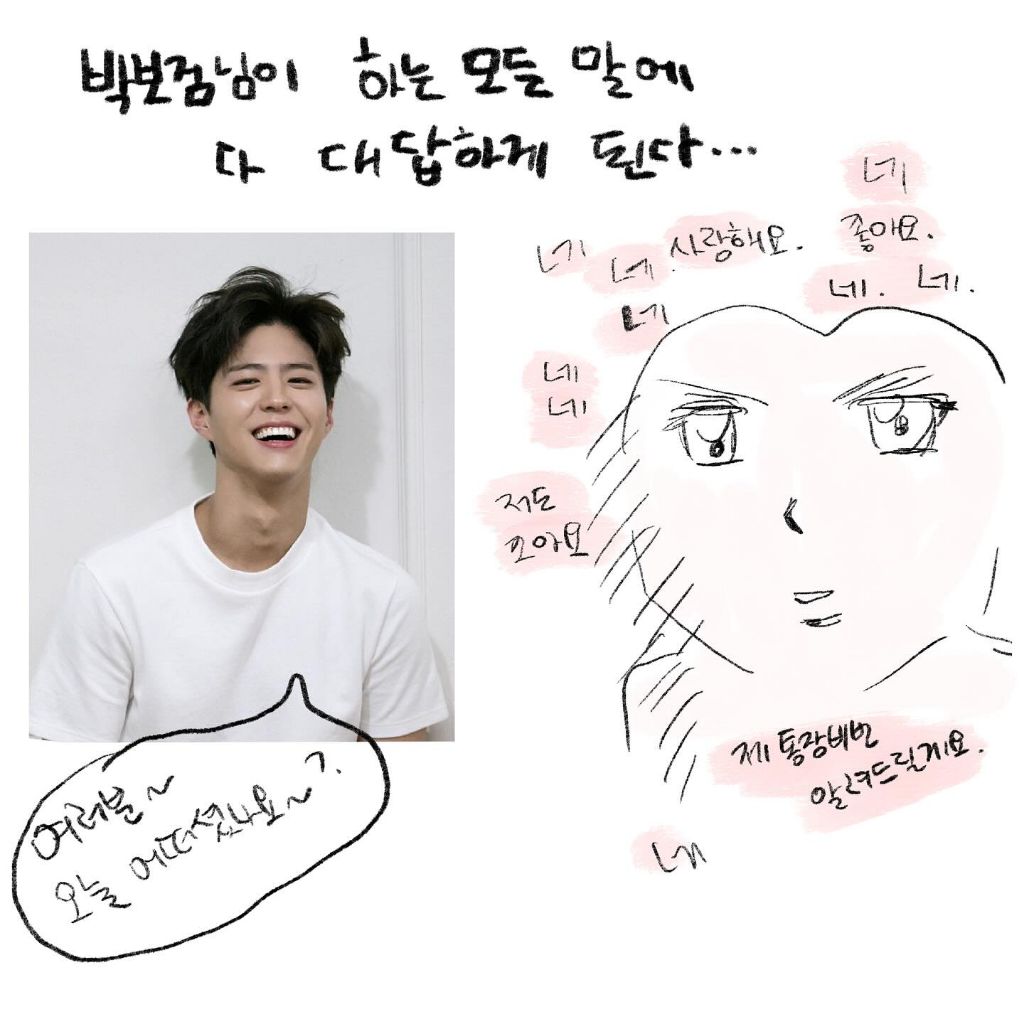 박보검님이 하는 모든 말에
다 대답하게 된다...
네
네
사랑해요.
네
좋아요.
네
네.
네.
네
네
저도
조아요
여러분~
오늘 어떠셨나요~?.
제 통장비번
알려드릴게요.
네